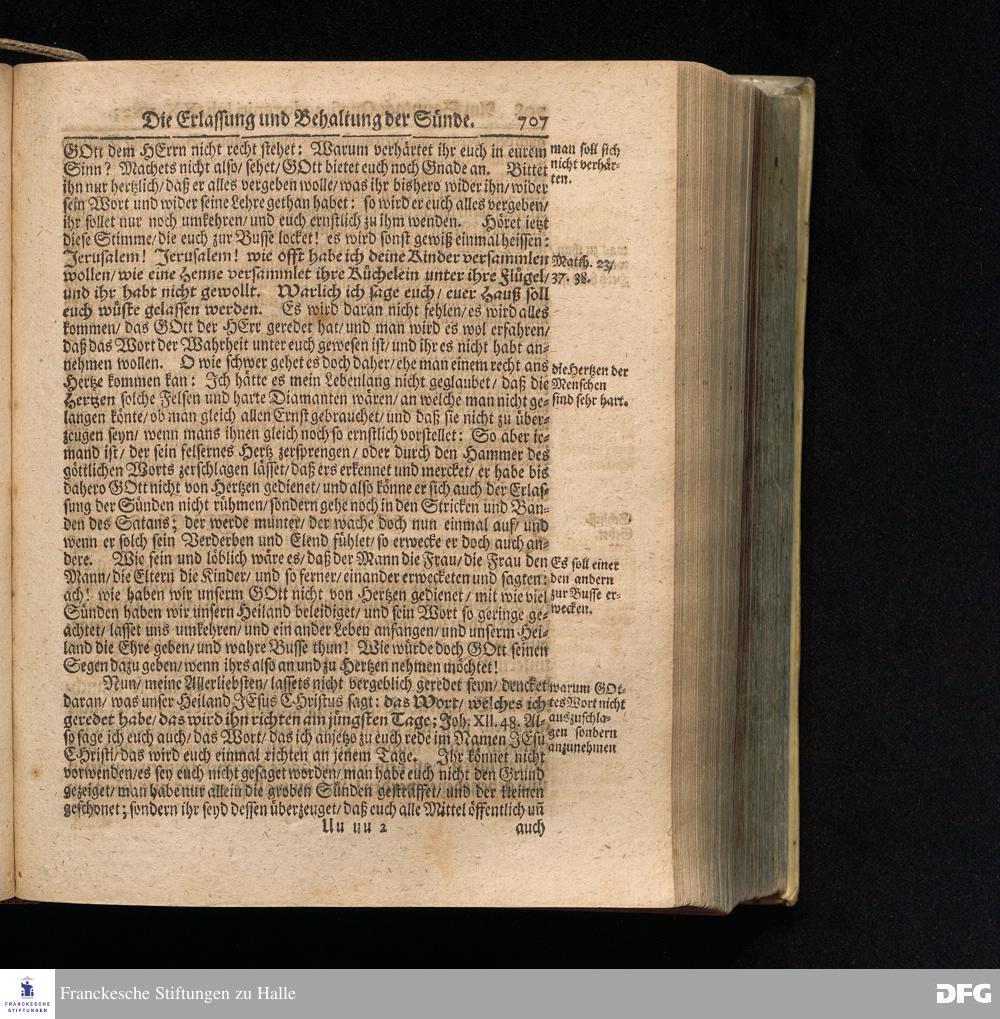 Die Erlassung und Behaltung der Sünde. 707
GOtt dem HErrn nicht recht stehet: Warum verhärtet ihr euch in eurem
Sinn? Machets nicht also/ sehet/ GOtt bietet euch noch Gnade an. Bittet
ihn nur hertzlich/ daß er alles vergeben wolle/ was ihr bishero wider ihn/ wider
sein Wort und wider seine Lehre gethan habet: so wird er euch alles vergeben/
ihr sollet nur noch umkehren/ und euch ernstlich zu ihm wenden. Höret ietzt
diese Stimme/ die euch zur Busse locket! es wird sonst gewiß einmal heissen:
Jerusalem! Jerusalem! wie offt habe ich deine Kinder versammlen
wollen/ wie eine Henne versammlet ihre Küchelein unter ihre Flügel/
und ihr habt nicht gewollt. Warlich ich sage euch/ euer Hauß soll
euch wüste gelassen werden. Es wird daran nicht fehlen/ es wird alles
kommen/ das GOtt der HErr geredet hat/ und man wird es wol erfahren/
daß das Wort der Wahrheit unter euch gewesen ist/ und ihr es nicht habt an=
nehmen wollen. O wie schwer gehet es doch daher/ ehe man einem recht ans
Hertze kommen kan: Ich hätte es mein Lebenlang nicht geglaubet/ daß die
Hertzen solche Felsen und harte Diamanten wären/ an welche man nicht ge=
langen könte/ ob man gleich allen Ernst gebrauchet/ und daß sie nicht zu über=
zeugen seyn/ wenn mans ihnen gleich noch so ernstlich vorstellet: So aber ie=
mand ist/ der sein felsernes Hertz zersprengen/ oder durch den Hammer des
göttlichen Worts zerschlagen lässet/ daß ers erkennet und mercket/ er habe bis
dahero GOtt nicht von Hertzen gedienet/ und also könne er sich auch der Erlas=
sung der Sünden nicht rühmen/ sondern gehe noch in den Stricken und Ban=
den des Satans; der werde munter/ der wache doch nun einmal auf/ und
wenn er solch sein Verderben und Elend fühlet/ so erwecke er doch auch an=
dere. Wie fein und löblich wäre es/ daß der Mann die Frau/ die Frau den
Mann/ die Eltern die Kinder/ und so ferner/ einander erwecketen und sagten:
ach! wie haben wir unserm GOtt nicht von Hertzen gedienet/ mit wie viel
Sünden haben wir unsern Heiland beleidiget/ und sein Wort so geringe ge=
achtet/ lasset uns umkehren/ und ein ander Leben anfangen/ und unserm Hei=
land die Ehre geben/ und wahre Busse thun! Wie würde doch GOtt seinen
Segen dazu geben/ wenn ihrs also an und zu Hertzen nehmen möchtet!
Nun/ meine Allerliebsten/ lassets nicht vergeblich geredet seyn/ dencket
daran/ was unser Heiland JEsus CHristus sagt: das Wort/ welches ich
geredet habe/ das wird ihn richten am jüngsten Tage; Joh. XII. 48. Al=
so sage ich euch auch/ das Wort/ das ich anjetzo zu euch rede im Namen JEsu
CHristi/ das wird euch einmal richten an jenem Tage. Ihr könnet nicht
vorwenden/ es sey euch nicht gesaget worden/ man habe euch nicht den Grund
gezeiget/ man habe nur allein die groben Sünden gestraffet/ und der kleinen
geschonet; sondern ihr seyd dessen überzeuget/ daß euch alle Mittel öffentlich uñ
Uu uu 2 auch
man soll sich
nicht verhär=
ten.
Matth. 23/
37. 38.
die Hertzen der
Menschen
sind sehr hart.
Es soll einer
den andern
zur Busse er=
wecken.
warum GOt=
tes Wort nicht
auszuschla=
gen sondern
anzunehmen
FRANCKESCHE
STIFTUNGEN
Franckesche Stiftungen zu Halle
DFG